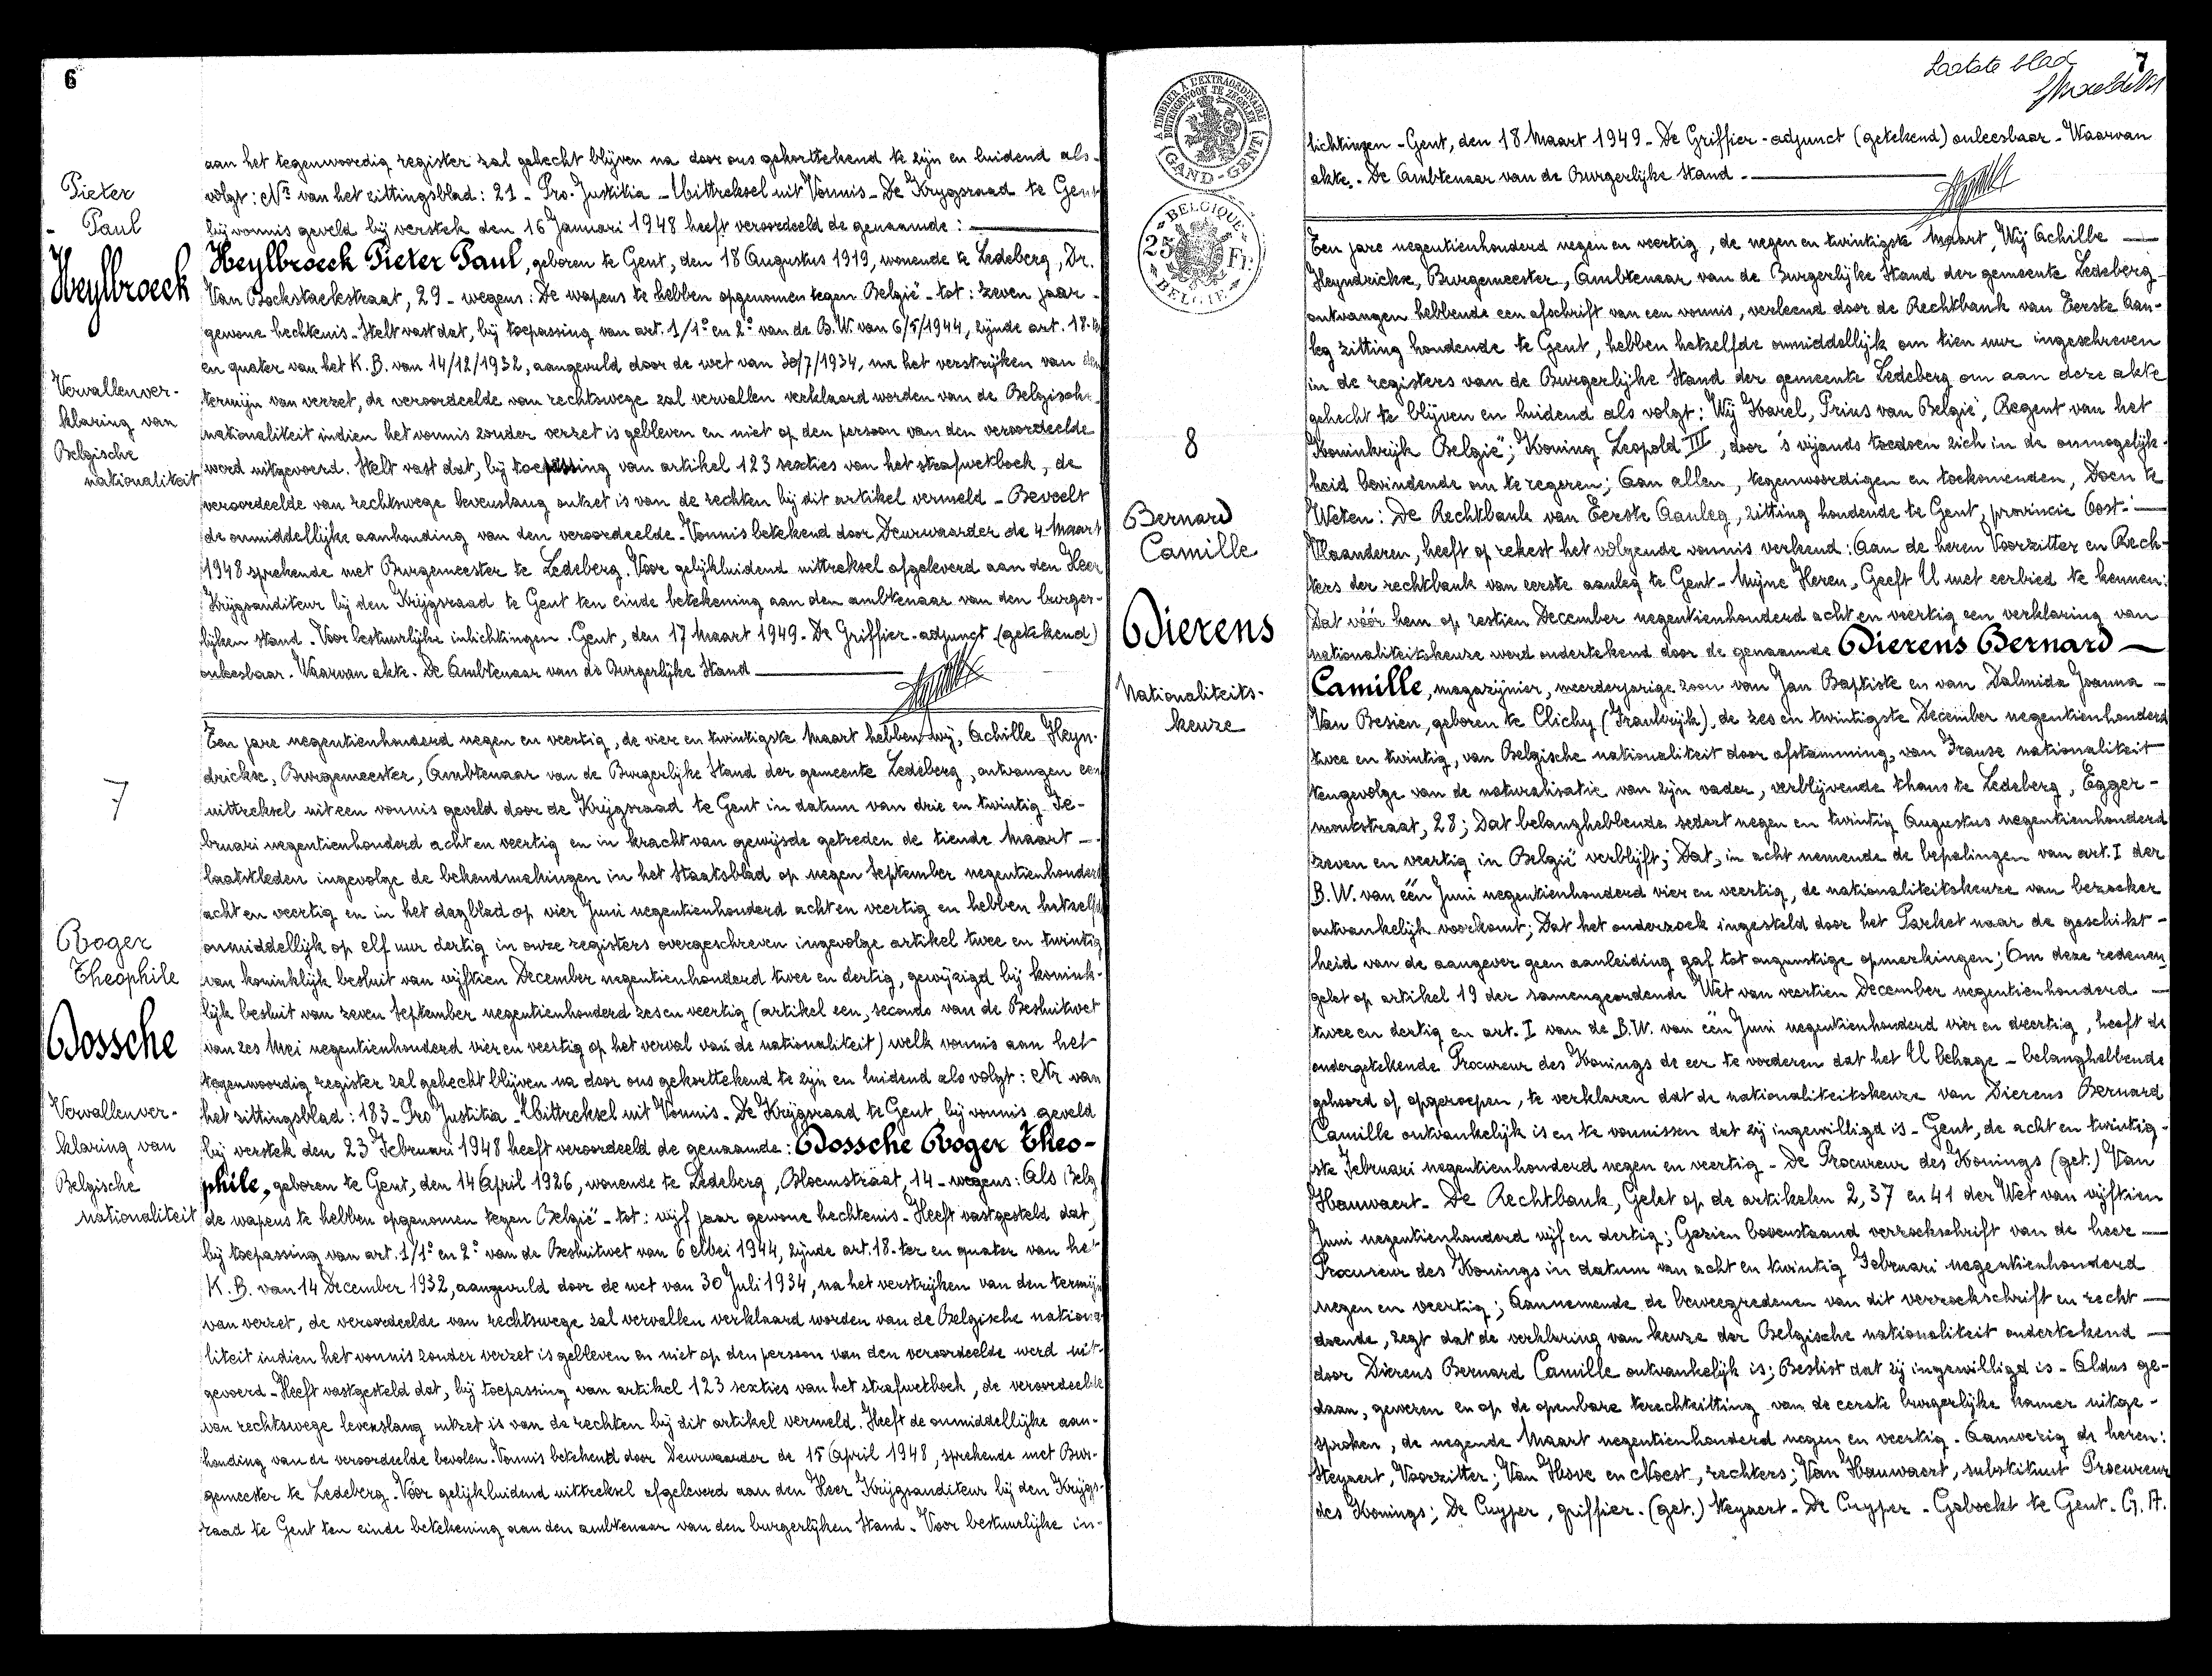 6
aan het tegenwoordig register zal gehecht blijven na door ons gekorttekend te zijn en luidend als-
volgt: Nr van het zittingsblad: 21 - Pro-Justitia - Uittreksel uit Vonnis - De Krygsraad te Gent
bij vonnis geveld bij verstek den 16 Januari 1948 heeft veroordeeld de genaamde:
Heylbroeck Pieter Paul, geboren te Gent, den 18 Augustus 1919, wonende te Ledeberg, Dr.
Van Bockxstaelestraat, 29 - wegens: De wapens te hebben opgenomen tegen België - tot: zeven jaar -
gewone hechtenis. Stelt vast dat, bij toepassing van art. 1/1° en 2° van de B.W. van 6/5/1944, zijnde art. 18-ter
en quater van het K.B. van 14/12/1932, aangevuld door de wet van 30/7/1934, na het verstrijken van den
termijn van verzet, de veroordeelde van rechtswege zal vervallen verklaard worden van de Belgische
nationaliteit indien het vonnis zonder verzet is gebleven en niet op den persoon van den veroordeelde
werd uitgevoerd. Stelt vast dat, bij toepassing van artikel 123 sexties van het strafwetboek, de
veroordeelde van rechtswege levenslang ontzet is van de rechten bij dit artikel vermeld - Beveelt
de onmiddellijke aanhouding van den veroordeelde. Vonnis betekend door Deurwaarder de 4 Maart
1948 sprekende met Burgemeester te Ledeberg. Voor gelijkluidend uittreksel afgeleverd aan den Heer
Krijgsauditeur bij den Krijgsraad te Gent ten einde betekening aan den ambtenaar van den burger-
lijken stand. Voor bestuurlijke inlichtingen. Gent, den 17 Maart 1949. De Griffier-adjunct (getekend)
onleesbaar. Waarvan akte. De Ambtenaar van de Burgerlijke Stand
Pieter
- Paul
Heylbroeck
Vervallenver-
klaring van
Belgische
nationaliteit
Een jare negentienhonderd negen en veertig, de vier en twintigste Maart hebben wij, Achille Heyn-
drickse, Burgemeester, Ambtenaar van de Burgerlijke Stand der gemeente Ledeberg, ontvangen een
uittreksel uit een vonnis geveld door de Krijgsraad te Gent in datum van drie en twintig Fe-
bruari negentienhonderd acht en veertig en in kracht van gewijsde getreden de tiende Maart -
laatstleden ingevolge de bekendmakingen in het Staatsblad op negen September negentienhonderd
acht en veertig en in het dagblad op vier Juni negentienhonderd acht en veertig en hebben hetzelfde
onmiddellijk op elf uur dertig in onze registers overgeschreven ingevolge artikel twee en twintig
van koninklijk besluit van vijftien December negentienhonderd twee en dertig, gewijzigd bij konink-
lijk besluit van zeven September negentienhonderd zes en veertig (artikel een, secondo van de Besluitwet
van zes Mei negentienhonderd vier en veertig op het verval van de nationaliteit) welk vonnis aan het
tegenwoordig register zal gehecht blijven na door ons gekorttekend te zijn en luidend als volgt: Nr van
het zittingsblad: 183 - Pro Justitia - Uittreksel uit Vonnis - De Krijgsraad te Gent, bij vonnis geveld
bij verstek den 23 Februari 1948 heeft veroordeeld de genaamde: Dossche Roger Theo-
phile, geboren te Gent, den 14 April 1926, wonende te Ledeberg, Bloemstraat, 14 - wegens: Als Belg
de wapens te hebben opgenomen tegen België - tot: vijf jaar gewone hechtenis - Heeft vastgesteld dat,
bij toepassing van art. 1/1° en 2° van de Besluitwet van 6 Mei 1944, zijnde art. 18-ter en quater van het
K.B. van 14 December 1932, aangevuld door de wet van 30 Juli 1934, na het verstrijken van den termijn
van verzet, de veroordeelde van rechtswege zal vervallen verklaard worden van de Belgische nationa-
liteit indien het vonnis zonder verzet is gebleven en niet op den persoon van den veroordeelde werd uit-
gevoerd - Heeft vastgesteld dat, bij toepassing van artikel 123 sexties van het strafwetboek, de veroordeelde
van rechtswege levenslang ontzet is van de rechten bij dit artikel vermeld. Heeft de onmiddellijke aan-
houding van de veroordeelde bevolen. Vonnis betekend door Deurwaarder de 15 April 1948, sprekende met Bur-
gemeester te Ledeberg. Voor gelijkluidend uittreksel afgeleverd aan den Heer Krijgsauditeur bij den Krijgs-
raad te Gent ten einde betekening aan den ambtenaar van den burgerlijken Stand. Voor bestuurlijke in-
7
Roger
Theophile
Dossche
Vervallenver-
klaring van
Belgische
nationaliteit
Laatste blad
7
A TIMBRER A L'EXTRAORDINAIRE
BUITENGEWOON TE ZEGELEN
(GAND-GENT)
BELGIQUE
25 Fr.
BELGIE
lichtingen - Gent, den 18 Maart 1949 - De Griffier-adjunct (getekend) onleesbaar - Waarvan
akte. - De Ambtenaar van de Burgerlijke Stand -
Een jare negentienhonderd negen en veertig, de negen en twintigste Maart, Wij Achille
Heyndrickse, Burgemeester, Ambtenaar van de Burgerlijke Stand der gemeente Ledeberg
ontvangen hebbende een afschrift van een vonnis, verleend door de Rechtbank van Eerste Aan-
leg zitting houdende te Gent, hebben hetzelfde onmiddellijk om tien uur ingeschreven
in de registers van de Burgerlijke Stand der gemeente Ledeberg om aan deze akte
gehecht te blijven en luidend als volgt: Wij Karel, Prins van België, Regent van het
Koninkrijk België; Koning Leopold III, door 's vijands toedoen zich in de onmogelijk-
heid bevindende om te regeren; Aan allen, tegenwoordigen en toekomenden, Doen te
Weten: De Rechtbank van Eerste Aanleg, zitting houdende te Gent, provincie Oost-
Vlaanderen, heeft op rekest het volgende vonnis verleend: Aan de heren Voorzitter en Rech-
ters der rechtbank van eerste aanleg te Gent - Mijne Heren, Geeft U met eerbied te kennen:
Dat vóór hem op zestien December negentienhonderd acht en veertig een verklaring van
nationaliteitskeuze werd ondertekend door de genaamde Dierens Bernard
Camille, magazijnier, meerderjarige zoon van Jan Baptiste en van Dalmida Joanna -
Van Besien, geboren te Clichy (Frankrijk), de zes en twintigste December negentienhonderd
twee en twintig, van Belgische nationaliteit door afstamming, van Franse nationaliteit
tengevolge van de naturalisatie van zijn vader, verblijvende thans te Ledeberg, Egger-
montstraat, 28; Dat belanghebbende sedert negen en twintig Augustus negentienhonderd
zeven en veertig in België verblijft; Dat, in acht nemende de bepalingen van art. I der
B.W. van één Juni negentienhonderd vier en veertig, de nationaliteitskeuze van bezoeker
ontvankelijk voorkomt; Dat het onderzoek ingesteld door het Parket naar de geschikt-
heid van de aangever geen aanleiding gaf tot ongunstige opmerkingen; Om deze redenen,
gelet op artikel 19 der samengeordende Wet van veertien December negentienhonderd -
twee en dertig en art. I van de B.W. van één Juni negentienhonderd vier en veertig, heeft de
ondergetekende Procureur des Konings de eer te vorderen dat het U behage - belanghebbende
gehoord of opgeroepen, te verklaren dat de nationaliteitskeuze van Dierens Bernard
Camille ontvankelijk is en te vonnissen dat zij ingewilligd is - Gent, de acht en twintig-
ste Februari negentienhonderd negen en veertig - De Procureur des Konings (get.) Van
Hauwaert - De Rechtbank, Gelet op de artikelen 2, 37 en 41 der Wet van vijftien
Juni negentienhonderd vijf en dertig; Gezien bovenstaand verzoekschrift van de heer
Procureur des Konings in datum van acht en twintig Februari negentienhonderd
negen en veertig; Aannemende de beweegredenen van dit verzoekschrift en recht
doende, zegt dat de verklaring van keuze der Belgische nationaliteit ondertekend
door Dierens Bernard Camille ontvankelijk is; Beslist dat zij ingewilligd is - Aldus ge-
daan, gewezen en op de openbare terechtzitting van de eerste burgerlijke kamer uitge-
sproken, de negende Maart negentienhonderd negen en veertig - Aanwezig de heren:
Steyaert, Voorzitter; Van Hove en Noest, rechters; Van Hauwaert, substituut Procureur
des Konings; De Cuyper, griffier. (get.) Steyaert - De Cuyper - Geboekt te Gent. G.A.
8
Bernard
Camille
Dierens
Nationaliteits-
keuze